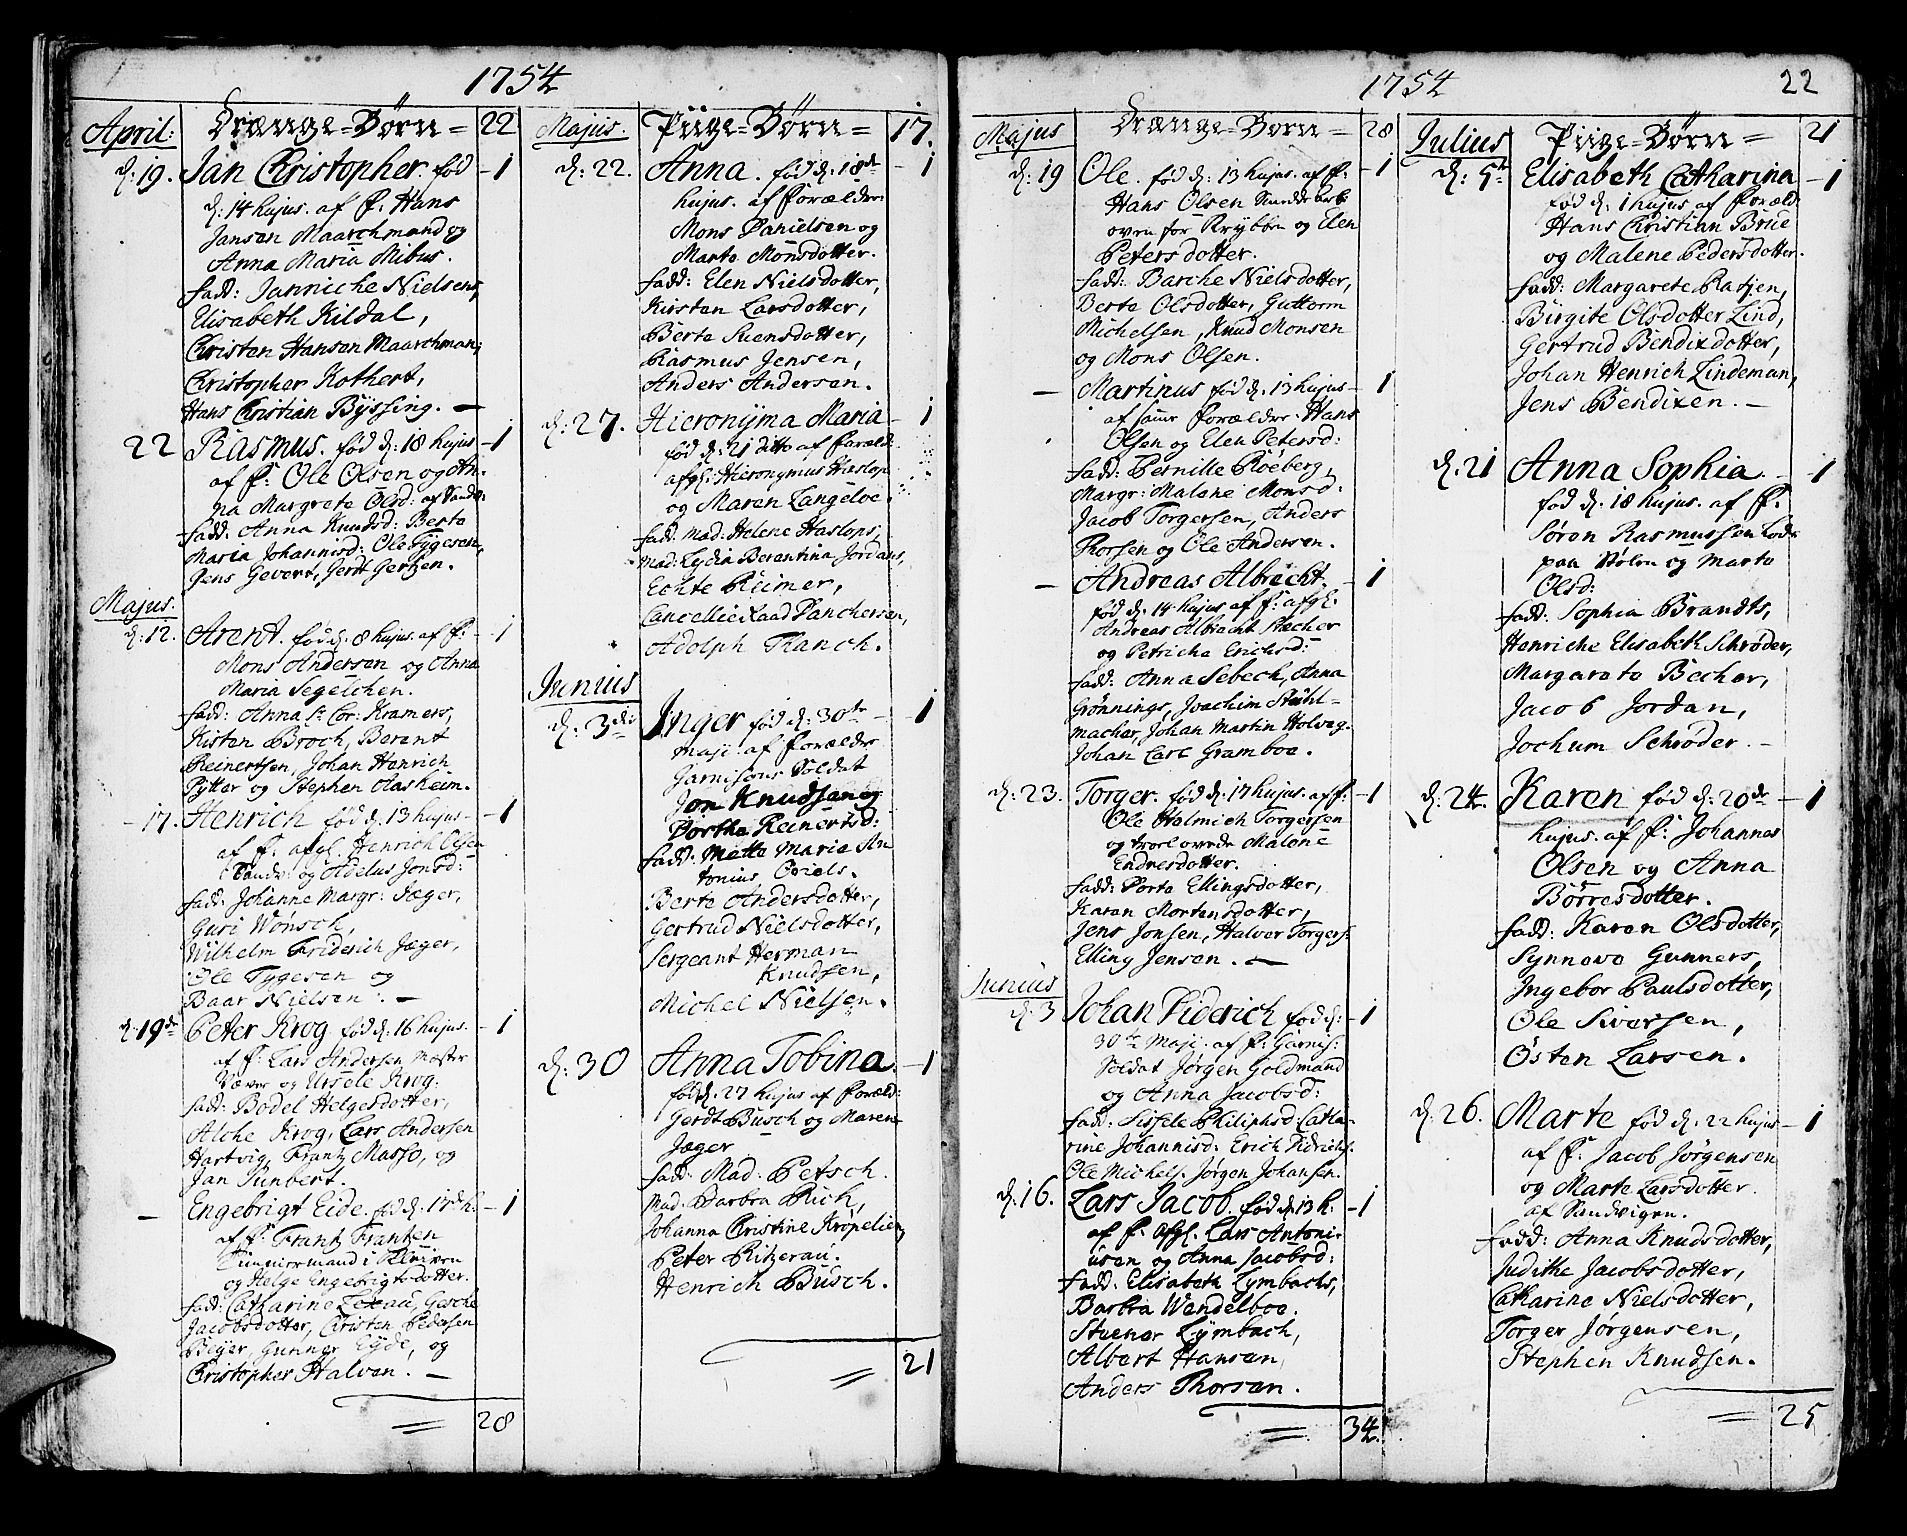 1754
April: Drænge=Børn= 22
d: 19. Jan Christopher. fød -1
d: 14 hujus. af F: Hans
Jansen Maarchmand og
Anna Maria Mibus.
fadd: Janniche Nielsens,
Elisabeth Kildal,
Christen Hansen Maarchman,
Christopher Kothert,
Hans Christian Byssing. —
22 Rasmus. fød d: 18 hujus -1
af F: Ole Olsen og An-
na Margrete Olsd: af Sandv:
fadd: Anna Knudsd: Berte
Maria Johannisd: Ole Tygesen,
Jens Gevert, Jerdt Gertzen.
Majus.
d: 12. Arent. fød d. 8 hujus. af F: -1
Mons Andersen og Anna
Maria Segelchen.
fadd: Anna Sr Cor: Kramers,
Kisten Broch, Berent
Reinertsen, Johan Henrich
Pytter og Stephen Aasheim.
-17. Henrich fød d: 13 hujus -1
af F: afgl. Henrich Olsen
Sandv: og Adelus Jonsd:
fadd: Johanne Margr: Jæger,
Guri Wønsch,
Wilhelm Friderich Jæger,
Ole Tygesen og
Baar Nielsen. —
d: 19de Peter Krog fød d: 16 hujus. -1
af F: Lars Andersen Mester
Væver og Ursele Krog.
fadd: Bodel Helgesdotter,
Alche Krog, Lars Andersen
Hartvig, Frantz Masso, og
Jan Sunbert.
— Engebrigt Eide. fød d: 17de h. -1
af F: Frantz Frantzen
Timmermand i Skriven
og Helge Engebrigtsdotter.
fadd: Catharine Lexau, Gesche
Jacobsdotter, Christen Pedersen
Beyer, Gunner Eyde, og
Christopher Halven. —
= 28
Majus. Piige=Børn= 17.
d: 22. Anna. fød d. 18de -1
hujus. af Forældre
Mons Danielsen og
Marte Monsdotter.
fadd: Elen Nielsdotter,
Kirsten Larsdotter,
Berte Suensdotter,
Rasmus Jensen,
Anders Andersen.
d: 27. Hieronyma Maria -1
fød d. 21 ditto af Foræld:
afgl: Hieronymus Haslop
og Maren Langeloe.
fad: Mad: Helene Haslops,
Mad: Lydia Berentina Jordans,
Echte Reimer,
Cancellie Raad Danchersen,
Adolph Planch.
Junius
d: 3die Inger fød d: 30te -1
Maji. af Forældre
Garnisons Soldat
Jon Knudsen og
Dorthe Reinertsd:
fadd: Mette Marie An
tonius Griels.
Berte Andersdotter,
Gertrud Nielsdotter,
Sergeant Herman
Knudsen,
Michel Nielsen.
d: 30 Anna Tobina. -1
fød d. 27 hujus af Foræld:
Gerdt Busch og Maren
Jæger
fad: Mad: Petsch.
Mad: Barbra Rich,
Johanna Christine Krøpelien,
Peter Ritzerau.
Henrich Busch.
= 21
1754 22
Majus Drænge-Børn- 28
d: 19 Ole. fød d: 13 hujus. af F: -1
Hans Olsen Sandv:
oven for Krybben og Elen
Petersdotter.
fadd: Barche Nielsdotter,
Berte Olsdotter, Guttorm
Michelsen, Knud Monsen
og Mons Olsen.
— Martinus fød d. 13 hujus -1
af samme Forældre. Hans
Olsen og Elen Petersd:
fadd: Pernille Røeberg,
Margr: Malene Monsd:
Jacob Torgersen, Anders
Thorsen og Ole Andersen.
— Andreas Albrecht. -1
fød d. 14 hujus af F: afgl.
Andreas Albrecht Stæcher
og Petriche Erichsd:
fadd: Anna Sebech, Anna
Grønnings, Joachim Stuhl-
macher, Johan Martin Holvag.
Johan Carl Gramboe.
d: 23. Torger. fød d. 17 hujus. af F: -1
Ole Helmich Torgersen
og trolovede Malene
Endresdotter.
fadd: Dorte Ellingsdotter,
Karen Mortensdotter,
Jens Jonsen, Halver Torgers:
Elling Jensen. —
Junius
d. 3 Johan Diderich fød d: -1
30te Maji. af F: Garnis:
Soldat Jørgen Goldmand
og Anna Jacobsd:
fadd: Sissele Philiphsd: Catha-
rine Johannisd: Erich Didrichs.
Ole Michels. Jørgen Johansen.
d: 16. Lars Jacob. fød d. 13 h. -1
af F. afgl. Lars Antoni-
usen og Anna Jacobsd:
fadd: Elisabeth Lymbachs,
Barbra Wendelboe.
Stuener Lymbach,
Albert Hansen,
Anders Thorsen.
= 34.
Julius Piige=Børn= 21
d: 5te Elisabeth Catharina -1
fød d: 1 hujus af Foræld:
Hans Christian Brue
og Malene Pedersdotter.
fadd: Margarete Ratjen,
Birgite Olsdotter Lind,
Gertrud Bendixdotter,
Johan Henrich Lindeman,
Jens Bendixen. —
d. 21 Anna Sophia. -1
fød d. 18 hujus. af F:
Søren Rasmussen Lods
paa Stølen og Marte
Olsd:
fadd: Sophia Brandts,
Henriche Elisabeth Schrøder,
Margarete Becher,
Jacob Jordan,
Jochum Schrøder. —
d: 24. Karen fød d: 20de -1
hujus. af F: Johannes
Olsen og Anna
Børresdotter.
fadd: Karen Olsdotter,
Synnove Gunners,
Ingebor Paulsdotter,
Ole Siversen,
Østen Larsen.
d: 26. Marte fød d: 22 hujus -1
af F. Jacob Jørgensen
og Marte Larsdotter.
af Sandvigen.
fadd: Anna Knudsdotter,
Judithe Jacobsdotter,
Catharine Nielsdotter,
Torger Jørgensen,
Stephen Knudsen.
= 25